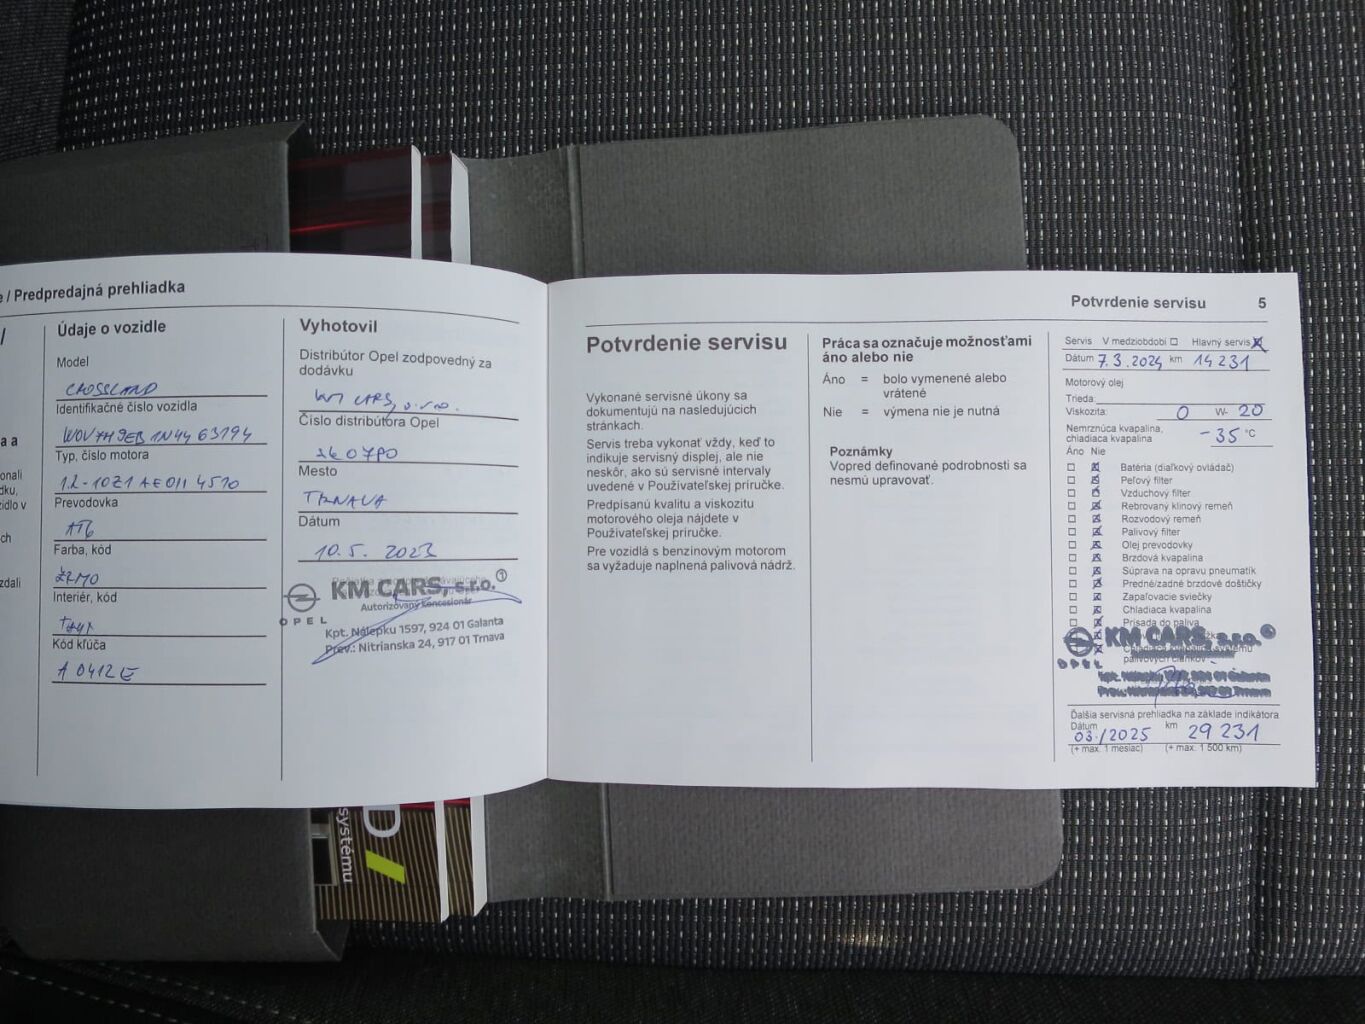 e / Predpredajná prehliadka
Údaje o vozidle
Model
CROSSLAND
Identifikačné číslo vozidla
W0V7H9EB1N4463194
Typ, číslo motora
Prevodovka
AT6
Farba, kód
Interiér, kód
Kód kľúča
A 0412E
Vyhotovil
Distribútor Opel zodpovedný za
dodávku
KM CARS, s.r.o.
Číslo distribútora Opel
SK07P0
Mesto
TRNAVA
Dátum
10.5. 2023
KM CARS, s.r.o. ①
Autorizovaný koncesionár
OPEL
Kpt. Nálepku 1597, 924 01 Galanta
Prev.: Nitrianska 24, 917 01 Trnava
Potvrdenie servisu 5
Potvrdenie servisu
Vykonané servisné úkony sa
dokumentujú na nasledujúcich
stránkach.
Servis treba vykonať vždy, keď to
indikuje servisný displej, ale nie
neskôr, ako sú servisné intervaly
uvedené v Používateľskej príručke.
Predpísanú kvalitu a viskozitu
motorového oleja nájdete v
Používateľskej príručke.
Pre vozidlá s benzínovým motorom
sa vyžaduje naplnená palivová nádrž.
Práca sa označuje možnosťami
áno alebo nie
Áno = bolo vymenené alebo
vrátené
Nie = výmena nie je nutná
Poznámky
Vopred definované podrobnosti sa
nesmú upravovať.
Servis V medziobdobí Hlavný servis
Dátum 7.3.2024 km 14 231
Motorový olej
Trieda:
Viskozita: 0 W- 20
Nemrznúca kvapalina,
chladiaca kvapalina -35 °C
Áno Nie
Batéria (diaľkový ovládač)
Peľový filter
Vzduchový filter
Rebrovaný klinový remeň
Rozvodový remeň
Palivový filter
Olej prevodovky
Brzdová kvapalina
Súprava na opravu pneumatík
Predné/zadné brzdové doštičky
Zapaľovacie sviečky
Chladiaca kvapalina
Prísada do paliva
KM CARS, s.r.o.
OPEL
palivových článkov
Ďalšia servisná prehliadka na základe indikátora
Dátum km
03./2025 29 231
(+ max. 1 mesiac) (+ max. 1 500 km)
systému